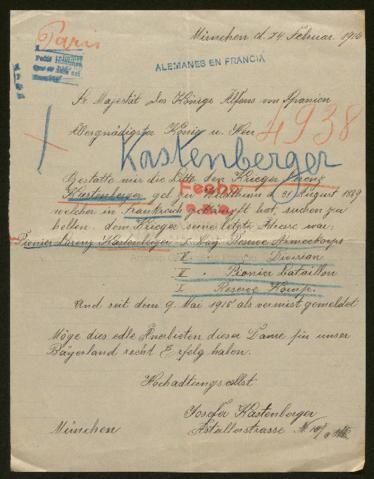 Paris
München d. 24 Februar 1916
ALEMANES EN FRANCIA
Sr Majestät des Königs Alfons von Spanien
Allergnädigster König u. Herr
4938
Kastenberger
Gestatte mir die Bitte den Krieger Lorenz
Kastenberger geb. zu 31 August 1889
welcher in Frankreich gekämpft hat, suchen zu
helfen. dem Krieger seine letzte Adresse war:
Pionier Lorenz Kastenberger I. Bay. Reserve Armeekorps
Division
Pionier Bataillon
I. Reserve Komp.
und seit dem 9. Mai 1915 als vermist gemeldet
Möge dies edle Anerbieten dieser Dame für unser
Bayerland recht Erfolg haben.
Hochachtungsvollst
Josefa Kastenberger
München